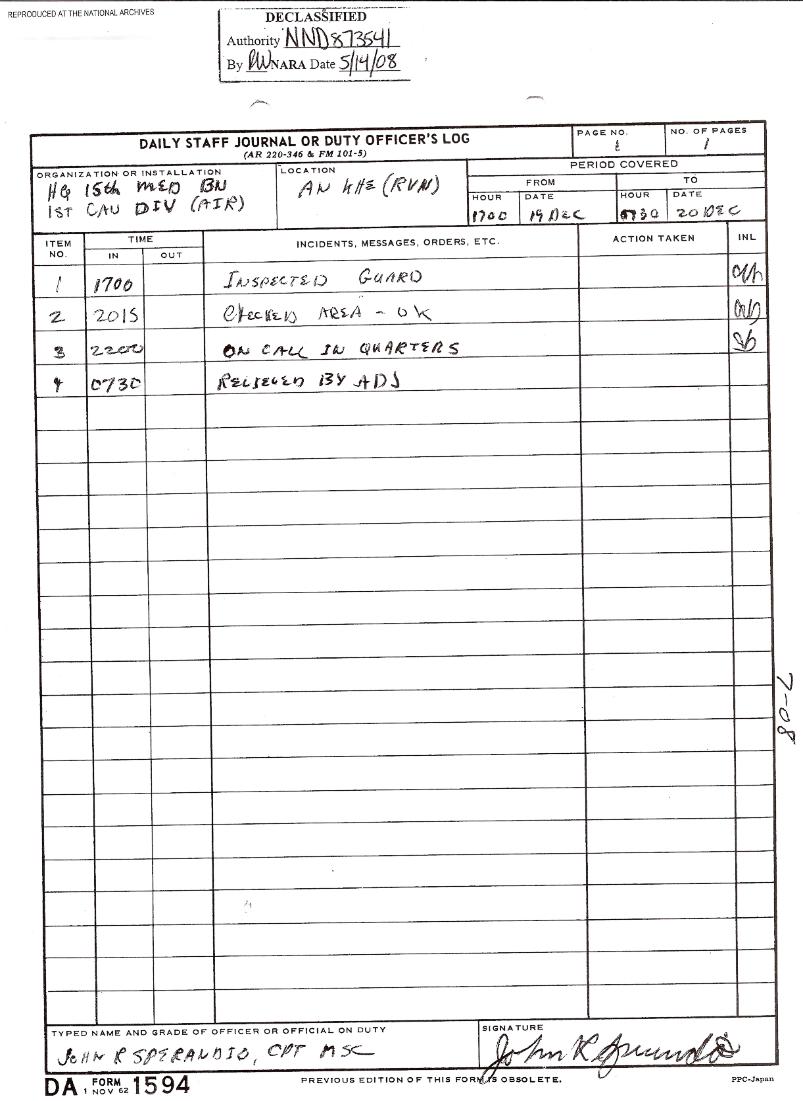 REPRODUCED AT THE NATIONAL ARCHIVES
DECLASSIFIED
Authority NND873541
By NARA Date 5/14/08
DAILY STAFF JOURNAL OR DUTY OFFICER'S LOG
(AR 220-346 & FM 101-5)
PAGE NO.
1
NO. OF PAGES
1
ORGANIZATION OR INSTALLATION
HQ 15th MED BN
1ST CAV DIV (AIR)
LOCATION
AN KHE (RVN)
PERIOD COVERED
FROM TO
HOUR DATE HOUR DATE
1700 19 DEC 0730 20 DEC
ITEM NO. TIME IN OUT INCIDENTS, MESSAGES, ORDERS, ETC. ACTION TAKEN INL
1 1700 INSPECTED GUARD
2 2015 CHECKED AREA - OK
3 2200 ON CALL IN QUARTERS
4 0730 RELIEVED BY ADJ
7-08
TYPED NAME AND GRADE OF OFFICER OR OFFICIAL ON DUTY
JOHN R SPERANDIO, CPT MSC
SIGNATURE
John R Sperandio
DA FORM 1594
1 NOV 62
PREVIOUS EDITION OF THIS FORM IS OBSOLETE.
PPC-Japan